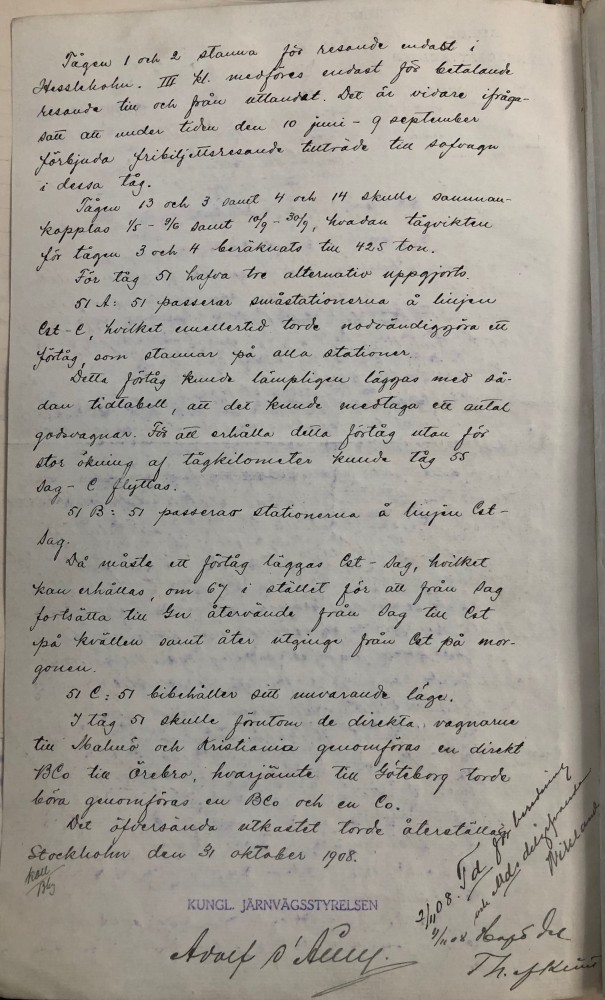 Tågen 1 och 2 stanna för resande endast i
Hessleholm. III kl. medföres endast för betalande
resande till och från utlandet. Det är vidare ifråga-
satt att under tiden den 10 juni – 9 september
förbjuda fribiljettsresande tillträde till sofvagn
i dessa tåg.
Tågen 13 och 3 samt 4 och 14 skulle samman-
kopplas 1/5 – 9/6 samt 10/9 – 30/9, hvadan tågvikten
för tågen 3 och 4 beräknats till 425 ton.
För tåg 51 hafva tre alternativ uppgjorts.
51 A: 51 passerar småstationerna å linjen
Cst – C, hvilket emellertid torde nödvändiggöra ett
förtåg, som stannar på alla stationer.
Detta förtåg kunde lämpligen läggas med så-
dan tidtabell, att det kunde medtaga ett antal
godsvagnar. För att erhålla detta förtåg utan för
stor ökning af tågkilometer kunde tåg 55
Sag – C flyttas.
51 B: 51 passerar stationerna å linjen Cst –
Sag.
Då måste ett förtåg läggas Cst – Sag, hvilket
kan erhållas, om 67 i stället för att från Sag
fortsätta till Gn återvände från Sag till Cst
på kvällen samt åter utginge från Cst på mor-
gonen.
51 C: 51 bibehåller sitt nuvarande läge.
I tåg 51 skulle förutom de direkta vagnarne
till Malmö och Kristiania genomföras en direkt
BCo till Örebro, hvarjämte till Göteborg torde
böra genomföras en BCo och en Co.
Det öfversända utkastet torde återställas.
Stockholm den 31 oktober 1908.
KUNGL. JÄRNVÄGSSTYRELSEN
Adolf d'Ailly.
2/11 08. Td för beredning
och Mds